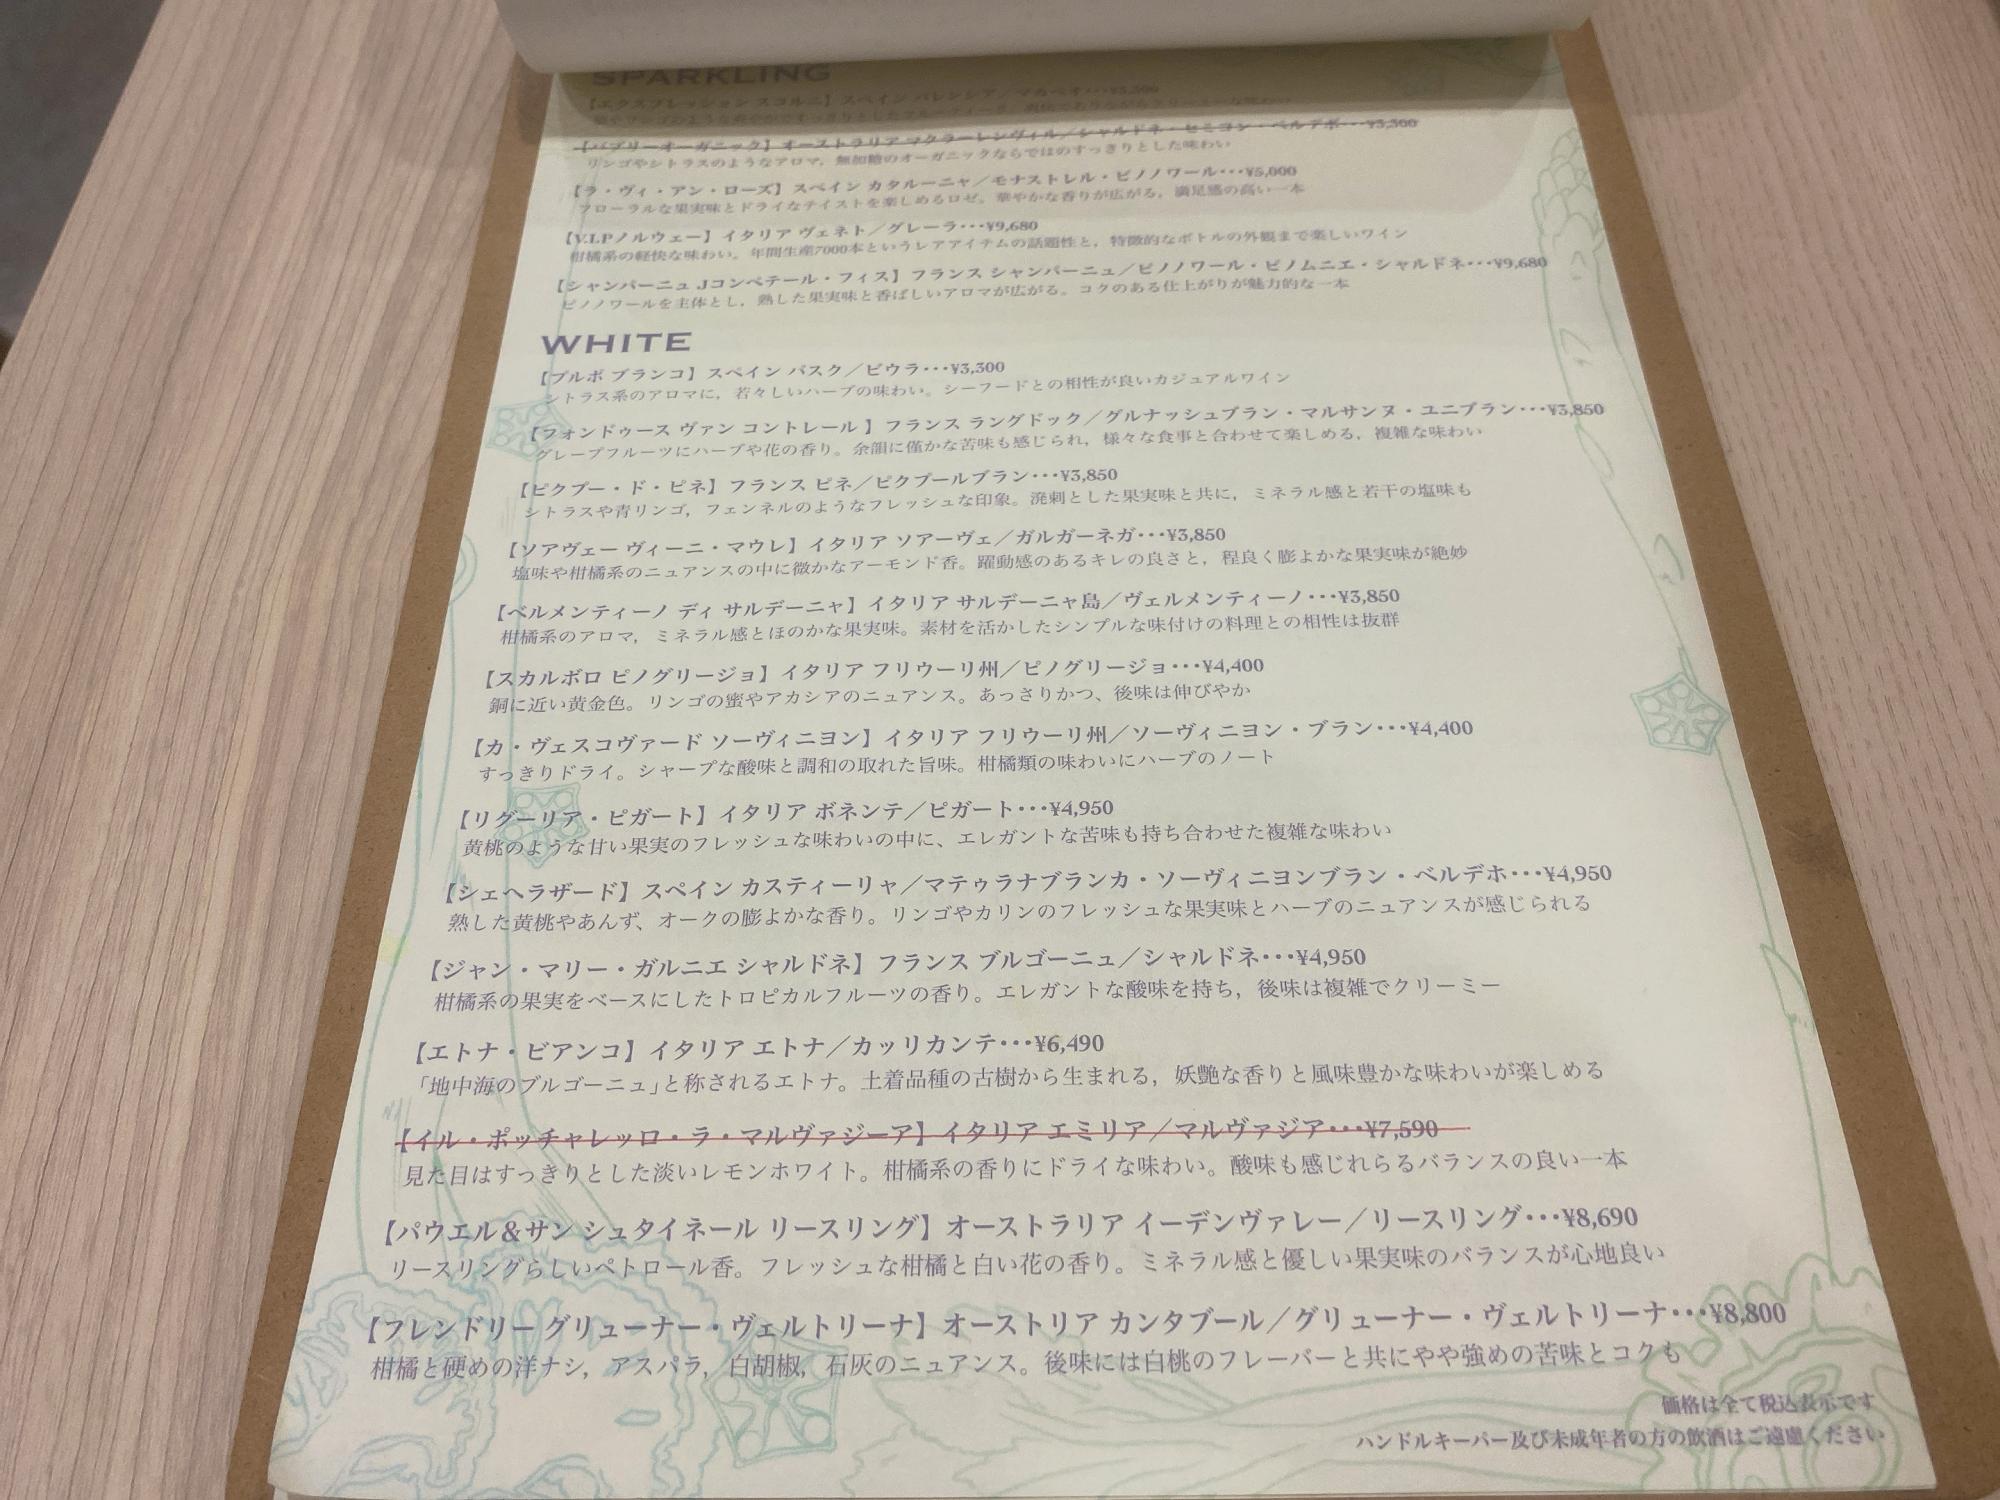 SPARKLING
【エクスプレッション スコルニ】スペイン バレンシア／マカベオ･･･¥3,300
【バブリーオーガニック】オーストラリア マクラーレンヴィル／シャルドネ・セミヨン・ベルデホ･･･¥3,300
リンゴやシトラスのようなアロマ，無加糖のオーガニックならではのすっきりとした味わい
【ラ・ヴィ・アン・ローズ】スペイン カタルーニャ／モナストレル・ピノノワール･･･¥5,000
フローラルな果実味とドライなテイストを楽しめるロゼ。華やかな香りが広がる，満足感の高い一本
【V.I.Pノルウェー】イタリア ヴェネト／グレーラ･･･¥9,680
柑橘系の軽快な味わい。年間生産7000本というレアアイテムの話題性と，特徴的なボトルの外観まで楽しいワイン
【シャンパーニュ Jコンペテール・フィス】フランス シャンパーニュ／ピノノワール・ピノムニエ・シャルドネ･･･¥9,680
ピノノワールを主体とし，熟した果実味と香ばしいアロマが広がる。コクのある仕上がりが魅力的な一本
WHITE
【ブルボ ブランコ】スペイン バスク／ビウラ･･･¥3,300
シトラス系のアロマに，若々しいハーブの味わい。シーフードとの相性が良いカジュアルワイン
【フォンドゥース ヴァン コントレール 】フランス ラングドック／グルナッシュブラン・マルサンヌ・ユニブラン･･･¥3,850
グレープフルーツにハーブや花の香り。余韻に僅かな苦味も感じられ，様々な食事と合わせて楽しめる，複雑な味わい
【ピクプー・ド・ピネ】フランス ピネ／ピクプールブラン･･･¥3,850
シトラスや青リンゴ，フェンネルのようなフレッシュな印象。溌剌とした果実味と共に，ミネラル感と若干の塩味も
【ソアヴェー ヴィーニ・マウレ】イタリア ソアーヴェ／ガルガーネガ･･･¥3,850
塩味や柑橘系のニュアンスの中に微かなアーモンド香。躍動感のあるキレの良さと，程良く膨よかな果実味が絶妙
【ベルメンティーノ ディ サルデーニャ】イタリア サルデーニャ島／ヴェルメンティーノ･･･¥3,850
柑橘系のアロマ，ミネラル感とほのかな果実味。素材を活かしたシンプルな味付けの料理との相性は抜群
【スカルボロ ピノグリージョ】イタリア フリウーリ州／ピノグリージョ･･･¥4,400
銅に近い黄金色。リンゴの蜜やアカシアのニュアンス。あっさりかつ、後味は伸びやか
【カ・ヴェスコヴァード ソーヴィニヨン】イタリア フリウーリ州／ソーヴィニヨン・ブラン･･･¥4,400
すっきりドライ。シャープな酸味と調和の取れた旨味。柑橘類の味わいにハーブのノート
【リグーリア・ピガート】イタリア ポネンテ／ピガート･･･¥4,950
黄桃のような甘い果実のフレッシュな味わいの中に、エレガントな苦味も持ち合わせた複雑な味わい
【シェヘラザード】スペイン カスティーリャ／マテゥラナブランカ・ソーヴィニヨンブラン・ベルデホ･･･¥4,950
熟した黄桃やあんず、オークの膨よかな香り。リンゴやカリンのフレッシュな果実味とハーブのニュアンスが感じられる
【ジャン・マリー・ガルニエ シャルドネ】フランス ブルゴーニュ／シャルドネ･･･¥4,950
柑橘系の果実をベースにしたトロピカルフルーツの香り。エレガントな酸味を持ち，後味は複雑でクリーミー
【エトナ・ビアンコ】イタリア エトナ／カッリカンテ･･･¥6,490
「地中海のブルゴーニュ」と称されるエトナ。土着品種の古樹から生まれる，妖艶な香りと風味豊かな味わいが楽しめる
【イル・ポッチャレッロ・ラ・マルヴァジーア】イタリア エミリア／マルヴァジア･･･¥7,590
見た目はすっきりとした淡いレモンホワイト。柑橘系の香りにドライな味わい。酸味も感じれらるバランスの良い一本
【パウエル＆サン シュタイネール リースリング】オーストラリア イーデンヴァレー／リースリング･･･¥8,690
リースリングらしいペトロール香。フレッシュな柑橘と白い花の香り。ミネラル感と優しい果実味のバランスが心地良い
【フレンドリー グリューナー・ヴェルトリーナ】オーストリア カンタブール／グリューナー・ヴェルトリーナ･･･¥8,800
柑橘と硬めの洋ナシ，アスパラ，白胡椒，石灰のニュアンス。後味には白桃のフレーバーと共にやや強めの苦味とコクも
価格は全て税込表示です
ハンドルキーパー及び未成年者の方の飲酒はご遠慮ください